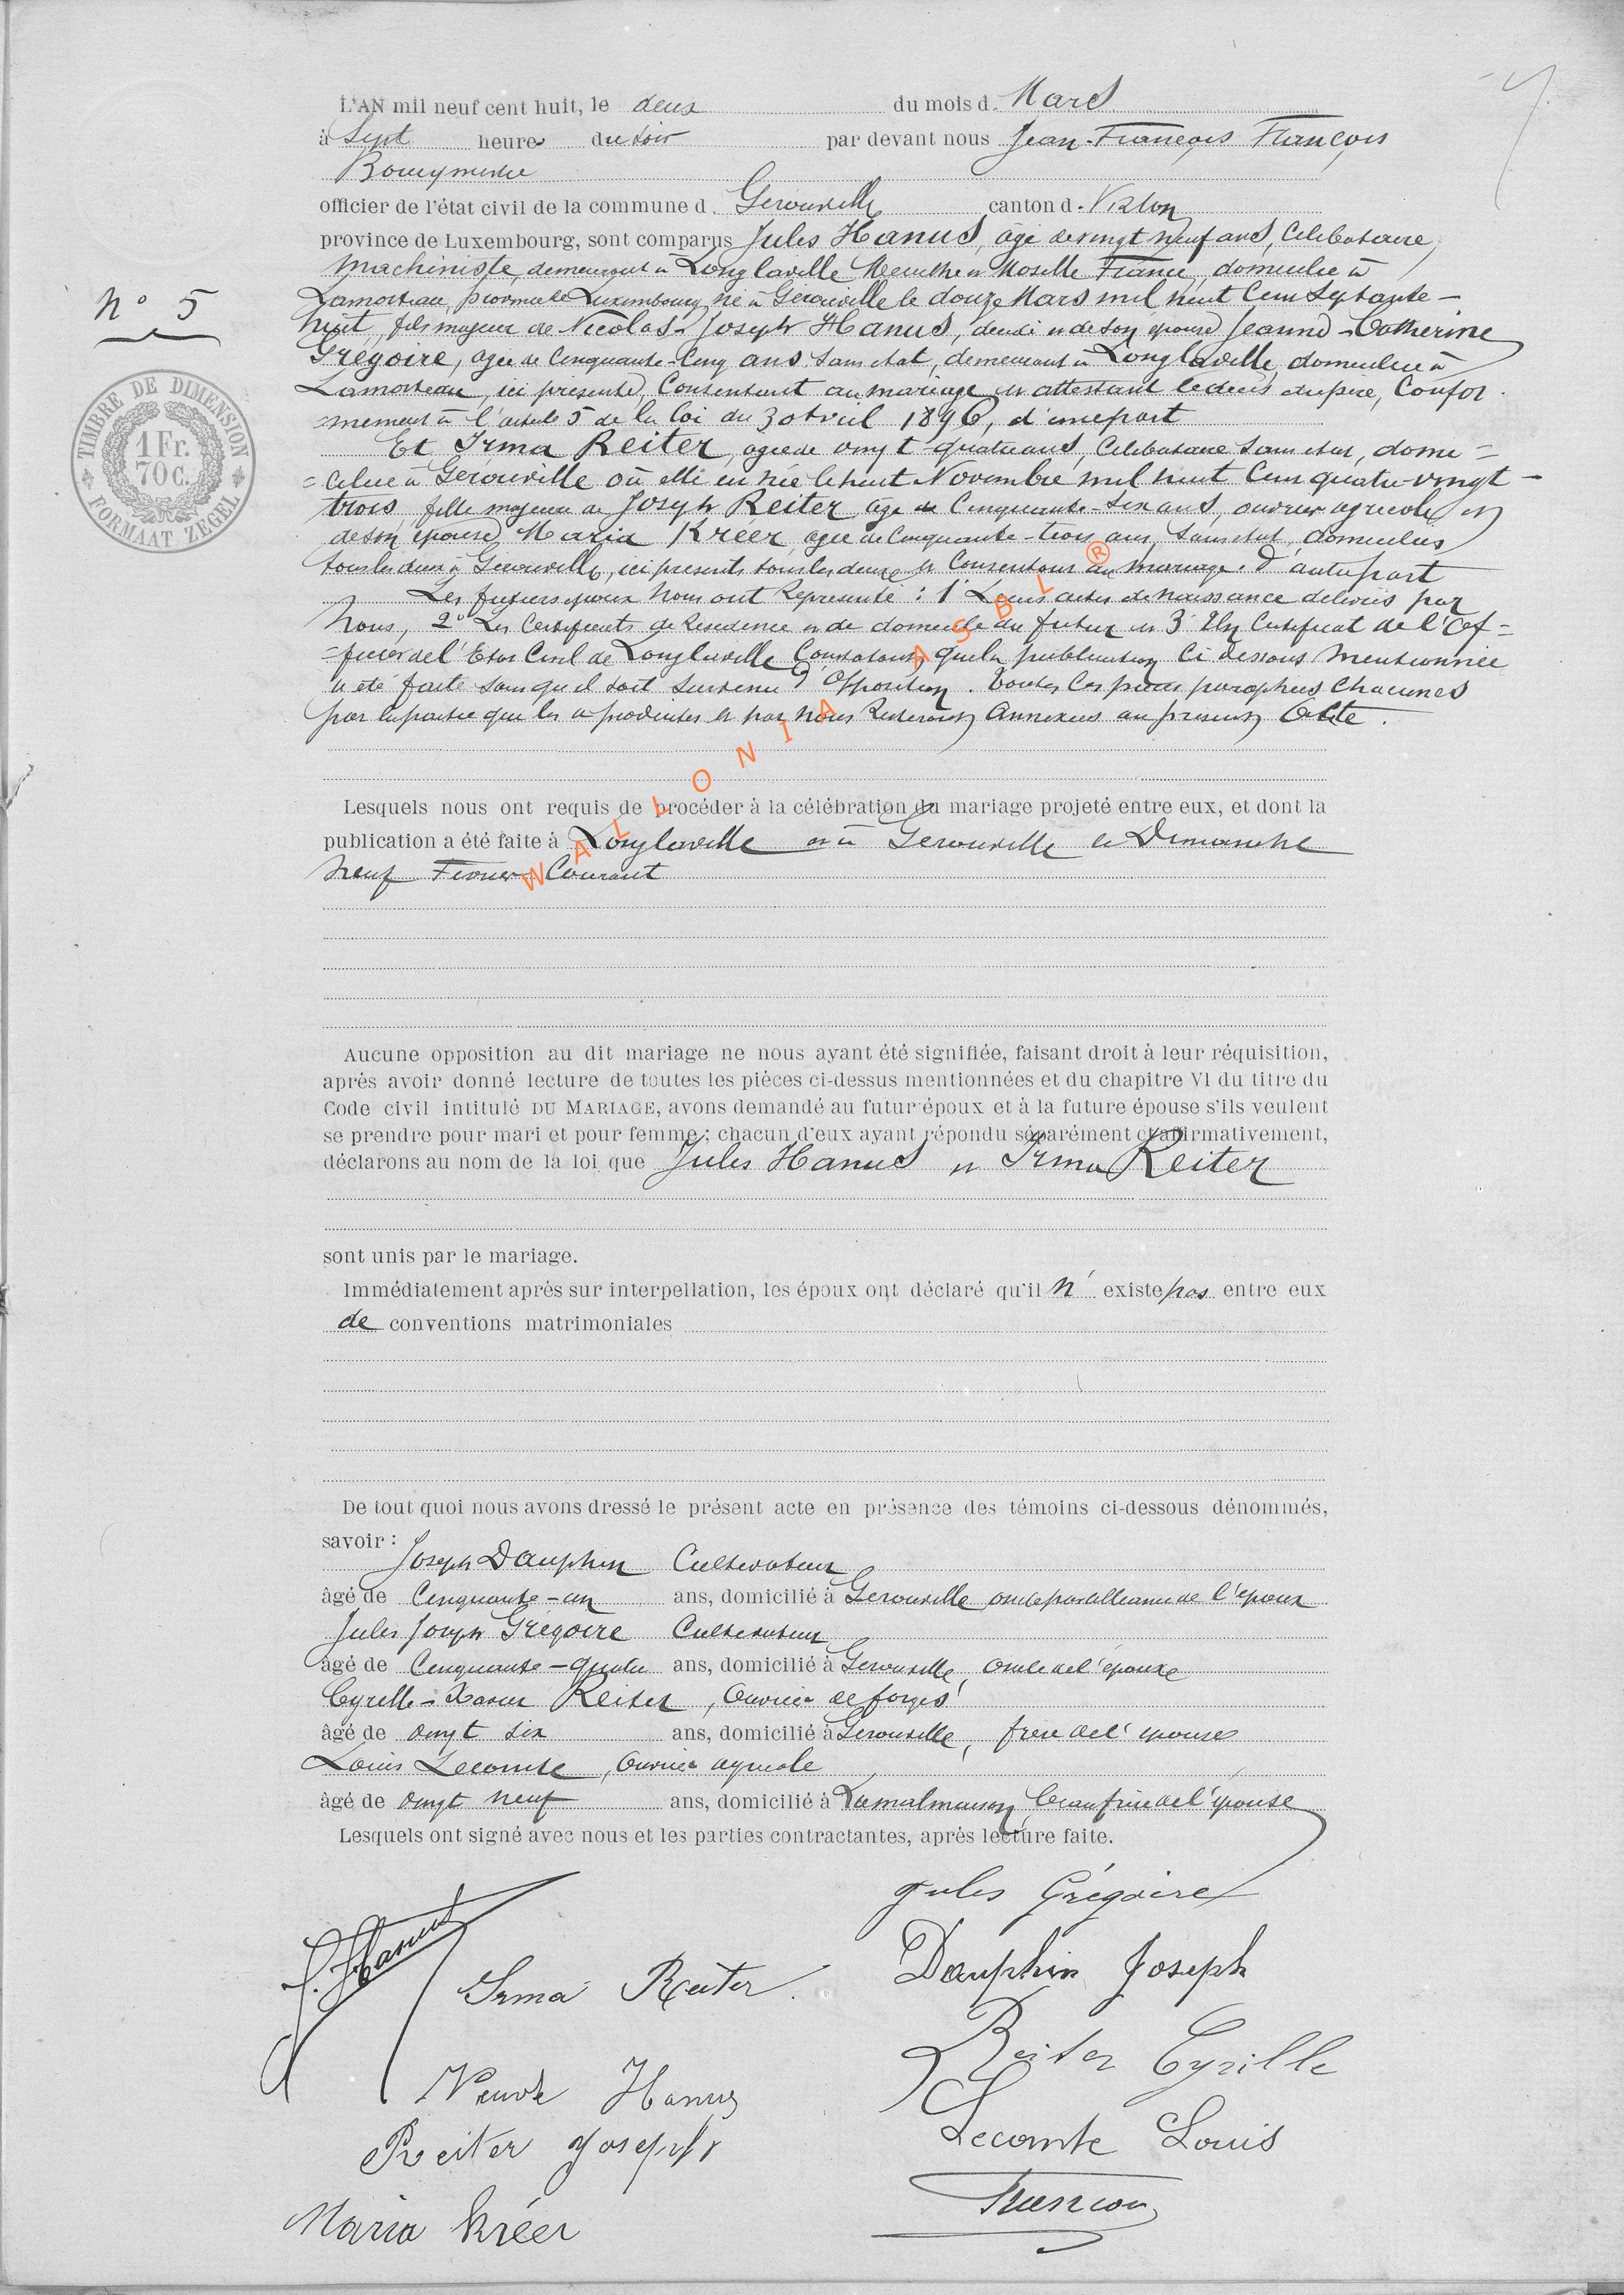 L'AN mil neuf cent huit, le deux du mois d. Mars
à Sept heures du soir par devant nous Jean-François François
Bourgmestre
officier de l'état civil de la commune d. Gerouville canton d. Virton
province de Luxembourg, sont comparus Jules Hanus, âgé de vingt neuf ans, Celibataire,
machiniste, demeurant à Longlaville Meurthe et Moselle France, domicilié à
N° 5
Lamorteau, province de Luxembourg, né à Gerouville le douze Mars mil huit Cent Septante-
huit, fils majeur de Nicolas-Joseph Hanus, décédé et de son épouse Jeanne-Catherine
Grégoire, agée de Cinquante-Cinq ans Sans état, demeurant à Longlaville, domiciliée à
Lamorteau, ici présente, Consentant au mariage et attestant le décès du père, Confor
mement à l'article 5 de la loi du 30 Avril 1896, d'une part
TIMBRE DE DIMENSION
1 Fr.
70 c.
FORMAAT ZEGEL
Et Irma Reiter, agée de vingt-quatre ans, Celibataire Sans état, domi=
=ciliée à Gerouville où elle est née le huit Novembre mil huit Cent quatre-vingt-
trois, fille majeure de Joseph Reiter âgé de Cinquante-Six ans, ouvrier agricole et
de son épouse Maria Kréer, agée de Cinquante-trois ans, Sans état, domiciliés
tous les deux à Gerouville, ici présents tous les deux et Consentant au mariage. d'autre part
Les futurs époux Nous ont Représenté : 1° Leurs actes de naissance délivrés par
Nous, 2° Les Certificats de Residence et de domicile du futur et 3° Un Certificat de l'Of=
=ficier de l'Etat Civil de Longlaville Constatant que la publication Ci dessous mentionnée
a été faite sans qu'il soit Survenu d'opposition. Toutes les pièces paraphées Chacunes
par la partie qui les a produites et par Nous Resteront Annexées au présent Acte.
WALLONIA ASBL ®
Lesquels nous ont requis de procéder à la célébration du mariage projeté entre eux, et dont la
publication a été faite à Longlaville et à Gerouville le Dimanche
neuf Fevrier Courant
Aucune opposition au dit mariage ne nous ayant été signifiée, faisant droit à leur réquisition,
après avoir donné lecture de toutes les pièces ci-dessus mentionnées et du chapitre VI du titre du
Code civil intitulé DU MARIAGE, avons demandé au futur époux et à la future épouse s'ils veulent
se prendre pour mari et pour femme ; chacun d'eux ayant répondu séparément et affirmativement,
déclarons au nom de la loi que Jules Hanus et Irma Reiter
sont unis par le mariage.
Immédiatement après sur interpellation, les époux ont déclaré qu'il n' existe pas entre eux
de conventions matrimoniales
De tout quoi nous avons dressé le présent acte en présence des témoins ci-dessous dénommés,
savoir :
Joseph Dauphin Cultivateur
âgé de Cinquante-un ans, domicilié à Gerouville oncle par alliance de l'époux
Jules Joseph Grégoire Cultivateur
âgé de Cinquante-quatre ans, domicilié à Gerouville, oncle de l'époux
Cyrille-Xavier Reiter, Ouvrier de forges
âgé de vingt six ans, domicilié à Gerouville, frère de l'épouse
Louis Lecomte, Ouvrier agricole
âgé de vingt neuf ans, domicilié à Lamalmaison, beau frère de l'épouse
Lesquels ont signé avec nous et les parties contractantes, après lecture faite.
J. Hanus
Jules Grégoire
Irma Reiter.
Dauphin Joseph
Reiter Cyrille
Veuve Hanus
Lecomte Louis
Reiter Joseph
François
Maria Kréer